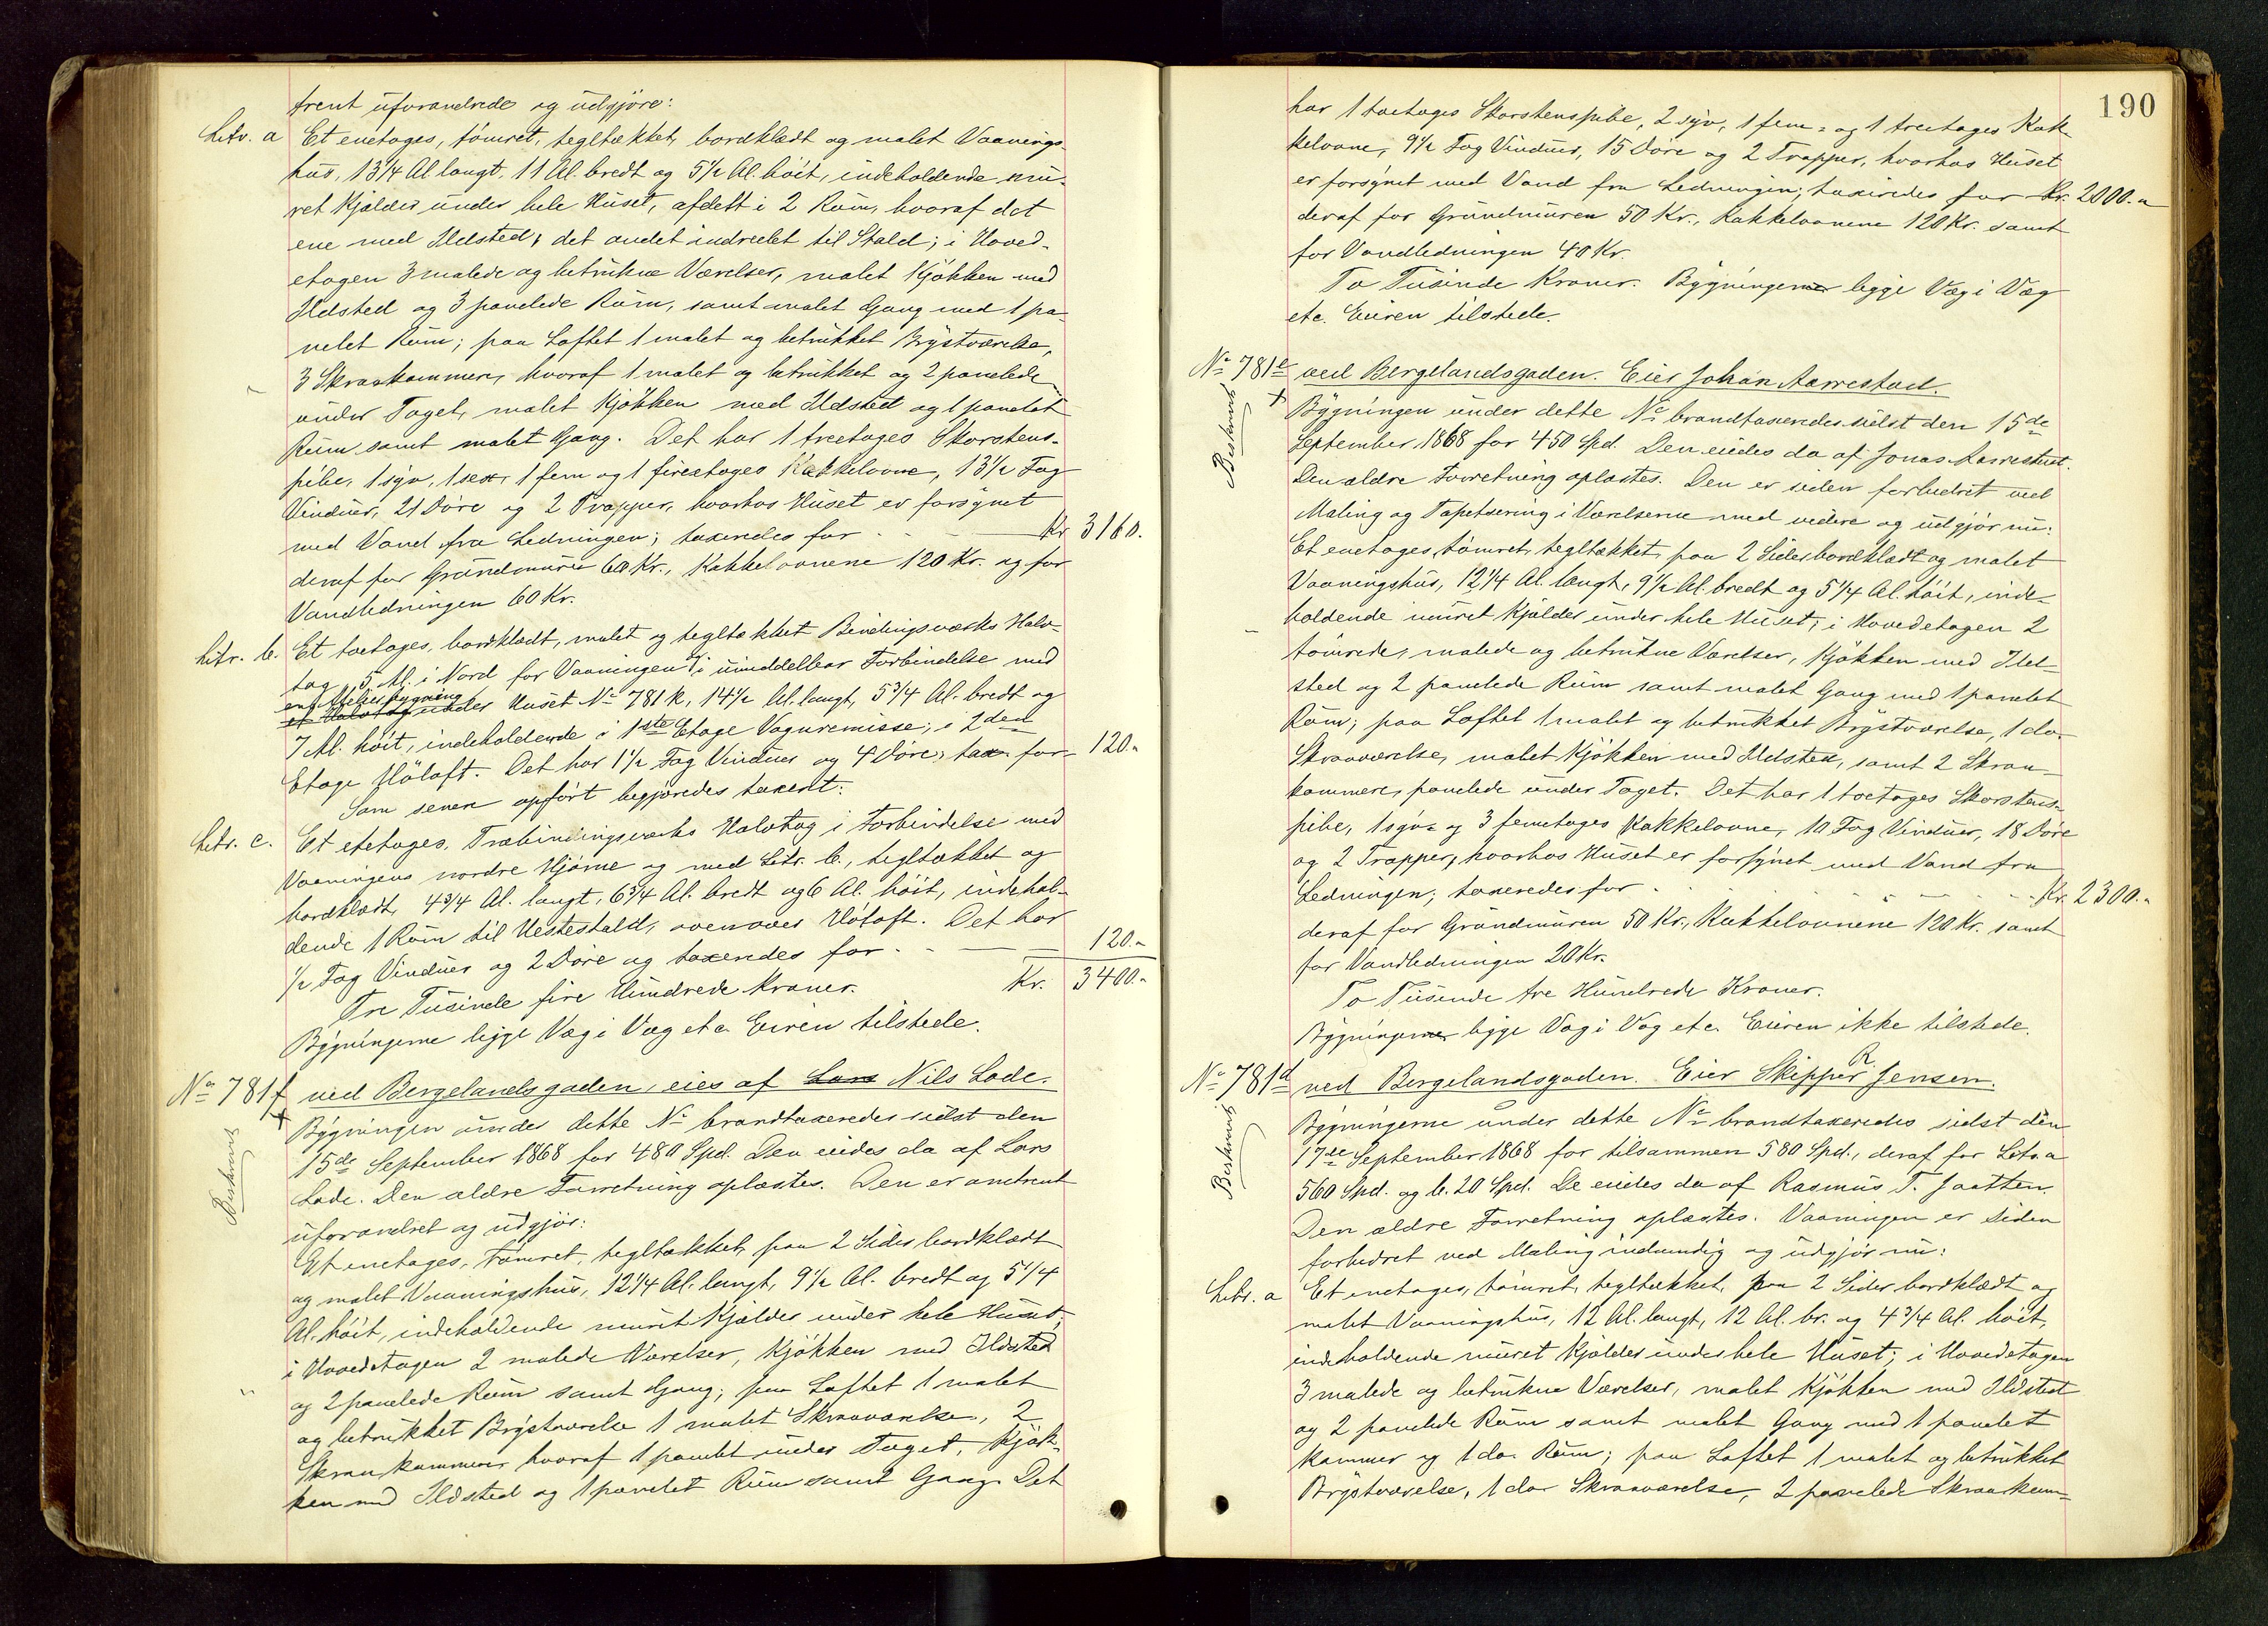 trent uforandrede og udgjøre:
Litr. a Et enetages, tømret, tegltækket, bordklædt og malet Vaanings-
hus, 13 1/4 Al. langt, 11 Al. bredt og 5 1/2 Al. høit, indeholdende mu-
ret Kjælder under hele Huset, afdelt i 2 Rum, hvoraf det
ene med Ildsted, det andet indredet til Stald; i Hoved-
etagen 3 malede og betrukne Værelser, malet Kjøkken med
Ildsted og 3 panelede Rum, samt malet Gang med 1 pa-
nelet Rum; paa Loftet 1 malet og betrukket Brystværelse,
3 Skraakammere, hvoraf 1 malet og betrukket og 2 panelede
under Taget, malet Kjøkken med Ildsted og 1 panelet
Rum samt malet Gang. Det har 1 treetages Skorstens-
pibe, 1 syv, 1 sex, 1 fem og 1 fireetages Kakkelovne, 13 1/2 Fag
Vinduer, 21 Døre og 2 Trapper, hvorhos Huset er forsynet
med Vand fra Ledningen; taxeredes for - - Kr 3160.
deraf for Grundmuren 60 Kr., Kakkelovnene 120 Kr. og for
Vandledningen 60 Kr.
Litr. b. Et toetages, bordklædt, malet og tegltækket Bindingsværks Halv-
tag, 5 Al. i Nord for Vaaningen i umiddelbar Forbindelse med
en Atelierbygning
et Halvtag under Huset No 781k, 14 1/2 Al. langt, 5 3/4 Al. bredt og
7 Al. høit, indeholdende i 1ste Etage Vognremisse, i 2den
Etage Høloft. Det har 1 1/2 Fag Vinduer og 4 Døre, tax. for - 120.-
Som senere opført begjæredes taxeret:
Litr. c. Et etetages, Træbindingsværks Halvtag i Forbindelse med
Vaaningens nordre Hjørne og med Litr. b., tegltækket og
bordklædt, 4 3/4 Al. langt, 6 3/4 Al. bredt og 6 Al. høit, indehol-
dende 1 Rum til Hestestald, ovenover Høloft. Det har
1/2 Fag Vinduer og 2 Døre og taxeredes for - - 120.-
Tre Tusinde fire Hundrede Kroner. Kr. 3400.-
Bygningerne ligge Væg i Væg etc. Eieren tilstede.
No 781f ved Bergelandsgaden, eies af Lars Nils Lode.
Bygningen under dette No brandtaxeredes sidst den
15de September 1868 for 480 Spd. Den eiedes da af Lars
Lode. Den ældre Forretning oplæstes. Den er omtrent
uforandret og udgjør:
Et enetages, tømret, tegltækket, paa 2 Sider bordklædt
og malet Vaaningshus, 12 1/4 Al. langt, 9 1/2 Al. bredt og 5 1/4
Al. høit, indeholdende muret Kjælder under hele Huset,
i Hovedetagen 2 malede Værelser, Kjøkken med Ildsted
og 2 panelede Rum samt Gang; paa Loftet 1 malet
og betrukket Brystværelse 1 malet Skraaværelse, 2
Skraakammere hvoraf 1 panelet under Taget, Kjøk-
ken med Ildsted og 1 panelet Rum samt Gang. Det
190
har 1 toetages Skorstenspibe, 2 syv, 1 fem- og 1 treetages Kak-
kelovne, 9 1/2 Fag Vinduer, 15 Døre og 2 Trapper, hvorhos Huset
er forsynet med Vand fra Ledningen; taxeredes for Kr. 2000.-
deraf for Grundmuren 50 Kr., Kakkelovnene 120 Kr. samt
for Vandledningen 40 Kr.
To Tusinde Kroner. Bygningen ligge Væg i Væg
etc. Eieren tilstede.
No 781e ved Bergelandsgaden. Eier Johan Aarrestad.
Bygningen under dette No brandtaxeredes sidst den 15de
September 1868 for 450 Spd. Den eiedes da af Jonas Aarrestad.
Den ældre Forretning oplæstes. Den er siden forbedret ved
Maling og Tapetsering i Værelserne med videre og udgjør nu:
Et enetages, tømret, tegltækket, paa 2 Sider bordklædt og malet
Vaaningshus, 12 1/4 Al. langt, 9 1/2 Al. bredt og 5 1/4 Al. høit, inde-
holdende muret Kjælder under hele Huset; i Hovedetagen 2
tømrede, malede og betrukne Værelser, Kjøkken med Ild-
sted og 2 panelede Rum samt malet Gang med 1 panelet
Rum; paa Loftet 1 malet og betrukket Brystværelse, 1 do.
Skraaværelse, malet Kjøkken med Ildsted, samt 2 Skraa-
kammere, panelede under Taget. Det har 1 toetages Skorstens-
pibe, 1 syv- og 3 femetages Kakkelovne, 10 Fag Vinduer, 18 Døre
og 2 Trapper, hvorhos Huset er forsynet med Vand fra
Ledningen; taxeredes for - - Kr. 2300.-
deraf for Grundmuren 50 Kr., Kakkelovnene 120 Kr. samt
for Vandledningen 20 Kr.
To Tusende tre Hundrede Kroner.
Bygningen ligge Væg i Væg etc. Eieren ikke tilstede.
No 781d ved Bergelandsgaden. Eier Skipper R. Jensen.
Bygningerne under dette No brandtaxeredes sidst den
17de September 1868 for tilsammen 580 Spd., deraf for Litr. a
560 Spd. og b. 20 Spd. De eiedes da af Rasmus T. Jaatten.
Den ældre Forretning oplæstes. Vaaningen er siden
forbedret ved Maling indvendig og udgjør nu:
Litr. a Et enetages, tømret, tegltækket, paa 2 Sider bordklædt og
malet Vaaningshus, 12 Al. langt, 12 Al. br. og 4 3/4 Al. høit,
indeholdende muret Kjælder under hele Huset; i Hovedetagen
3 malede og betrukne Værelser, malet Kjøkken med Ildsted
og 2 panelede Rum samt malet Gang med 1 panelet
Kammer og 1 do. Rum; paa Loftet 1 malet og betrukket
Brystværelse, 1 do. Skraaværelse, 2 panelede Skraakam-